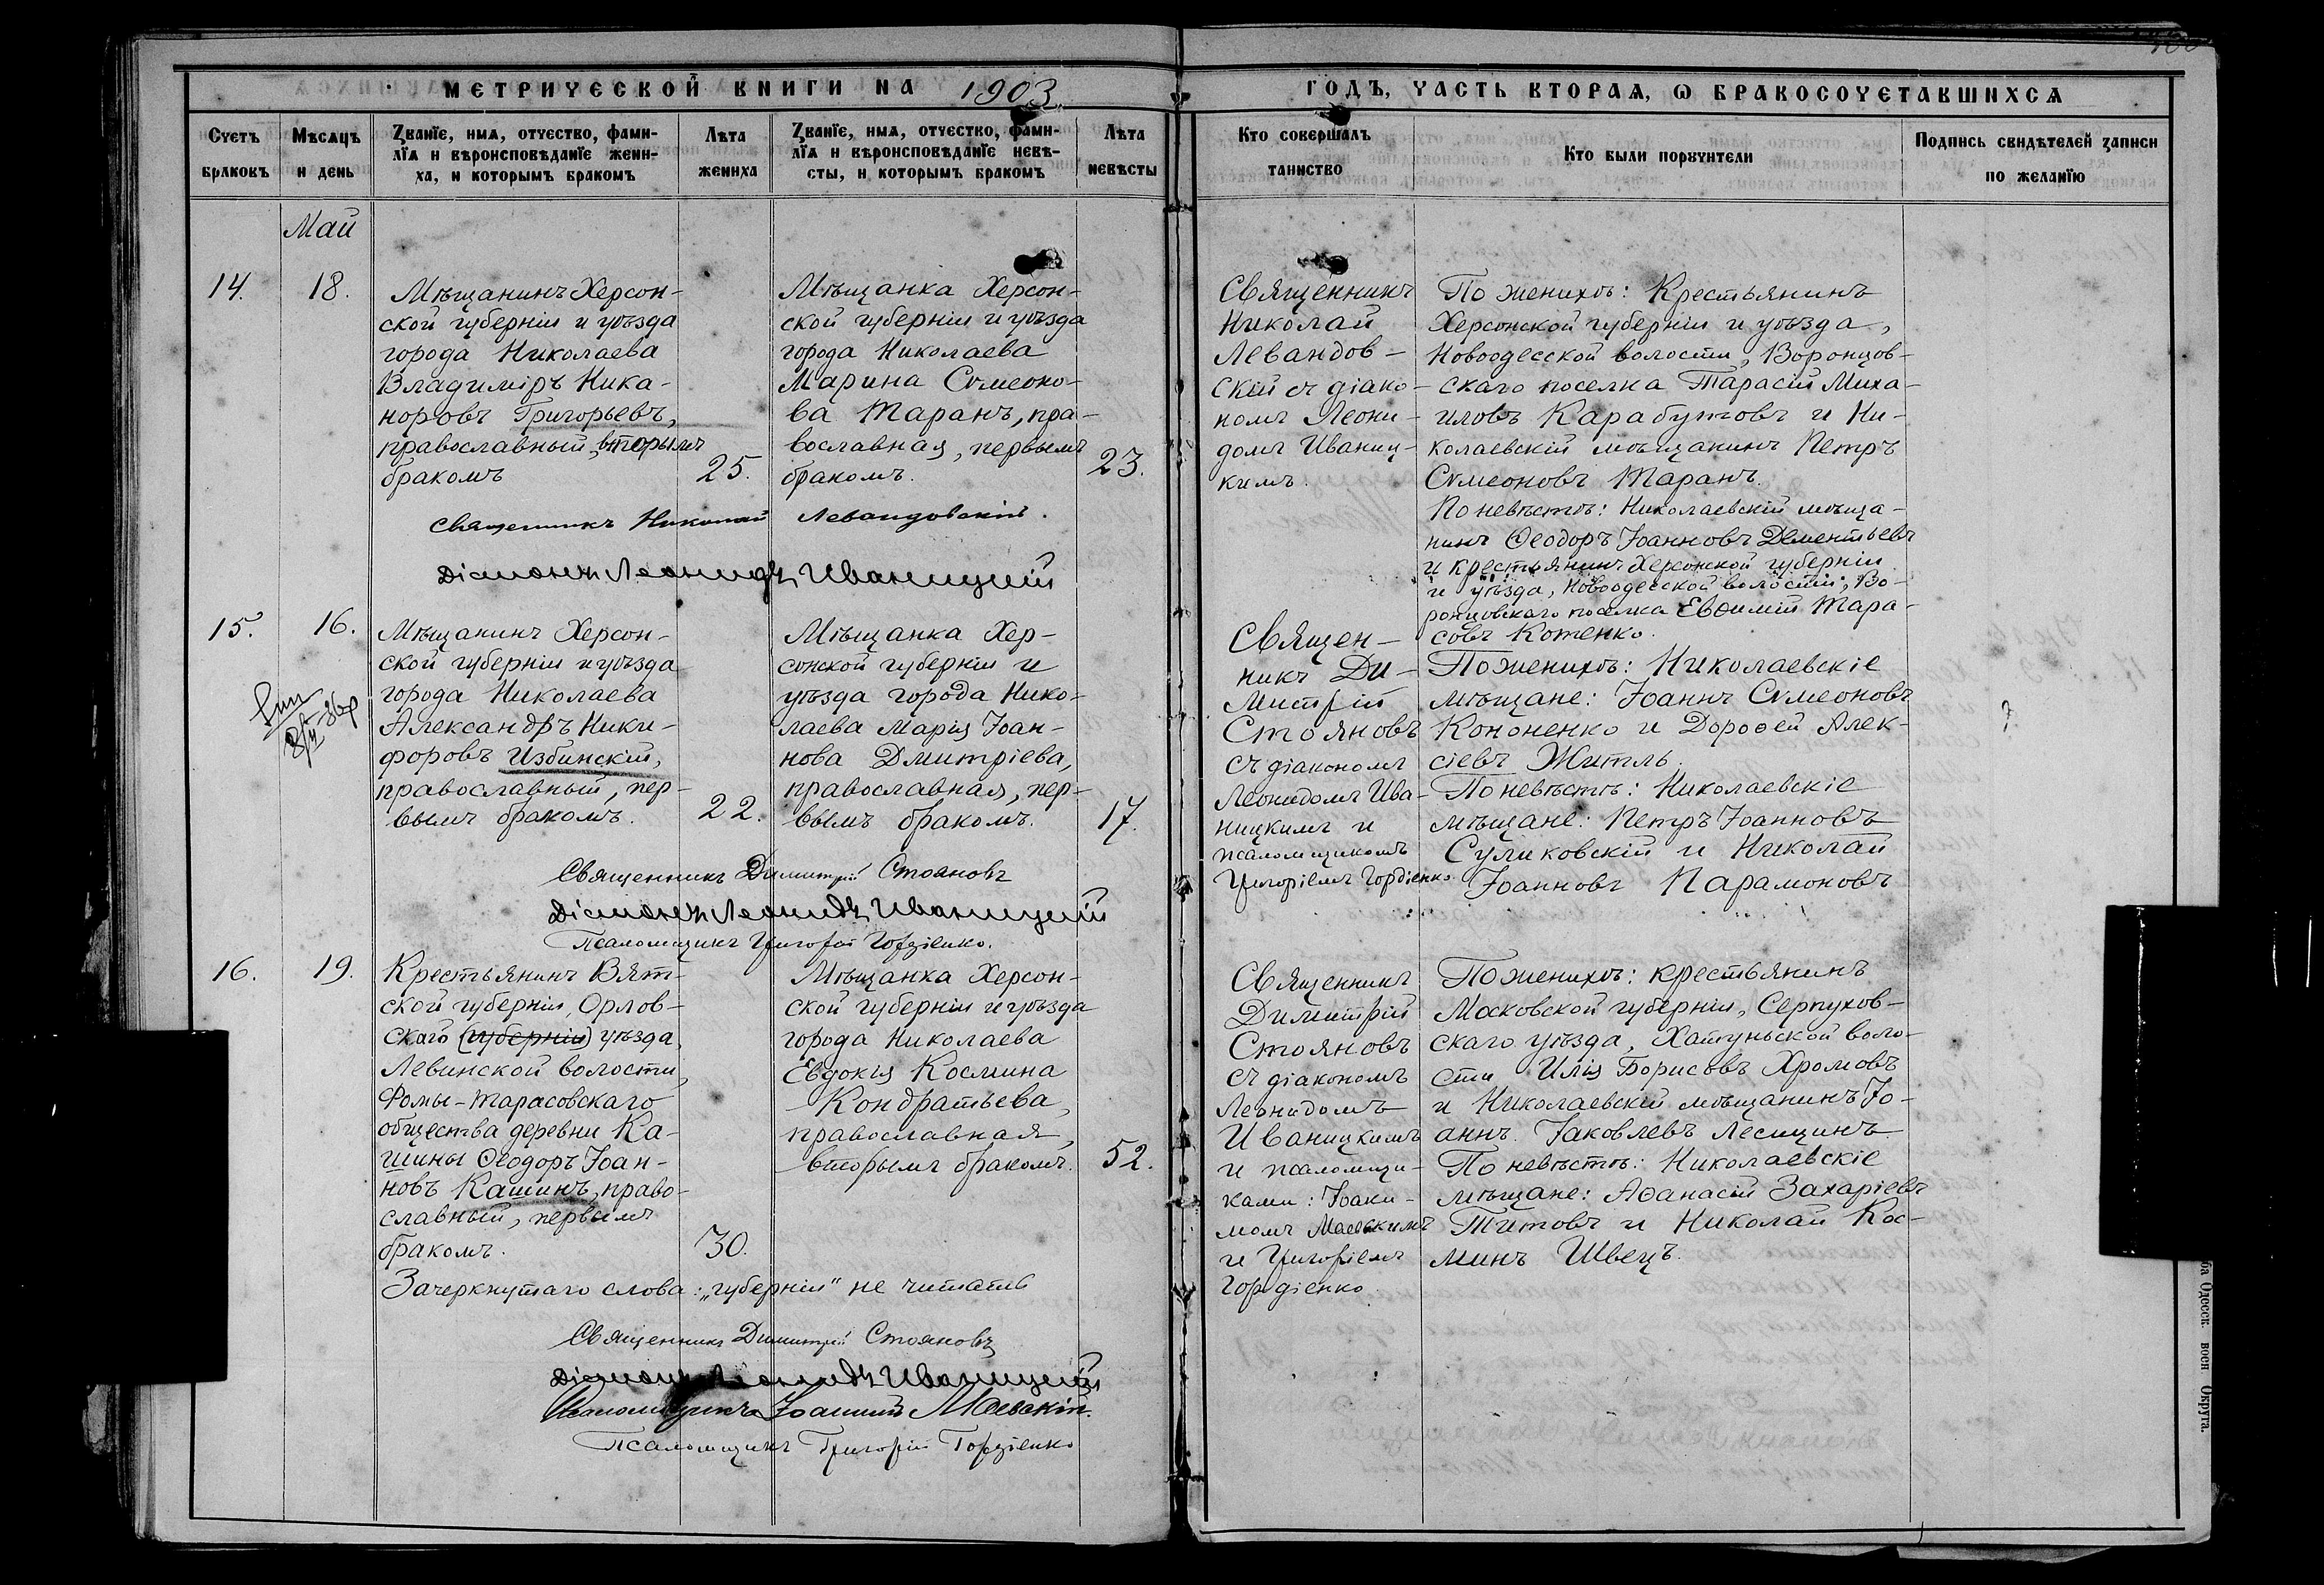 МЕТРИЧЕСКОЙ КНИГИ НА 1903
ГОДЪ, ЧАСТЬ ВТОРАЯ, Ѡ БРАКОСОЧЕТАВШИХСЯ
Счетъ
браковъ
Мѣсяцъ
и день
Званіе, имя, отчество, фами-
лія и вѣроисповѣданіе жени-
ха, и которымъ бракомъ
Лѣта
жениха
Званіе, имя, отчество, фами-
лія и вѣроисповѣданіе невѣ-
сты, и которымъ бракомъ
Лѣта
невѣсты
Кто совершалъ
таинство
Кто были поручители
Подпись свидѣтелей записи
по желанію
Май
14.
18.
Мѣщанинъ Херсон-
ской губерніи и уѣзда
города Николаева
Владиміръ Ника-
норовъ Григорьевъ,
православный, вторымъ
бракомъ
25.
Мѣщанка Херсон-
ской губерніи и уѣзда
города Николаева
Марина Сѵмеоно-
ва Таранъ, пра-
вославная, первымъ
бракомъ.
23.
Священникъ
Николай
Левандов-
скій съ діако-
номъ Леони-
домъ Иваниц-
кимъ.
По женихѣ: Крестьянинъ
Херсонской губерніи и уѣзда,
Новоодесской волости, Воронцов-
скаго поселка Тарасій Миха-
иловъ Карабутовъ и Ни-
колаевскій мѣщанинъ Петръ
Сѵмеоновъ Таранъ.
По невѣстѣ: Николаевскій мѣща-
нинъ Ѳеодоръ Іоанновъ Дементьевъ
и крестьянинъ Херсонской губерніи
и уѣзда, Новоодесской волости, Во-
ронцовскаго поселка Евѳимій Тара-
совъ Котенко.
Священникъ Николай Левандовскій.
Діаконъ Леонидъ Иваницкій
15.
16.
Мѣщанинъ Херсон-
ской губерніи и уѣзда
города Николаева
Александръ Ники-
форовъ Избинскій,
православный, пер-
вымъ бракомъ.
22.
Мѣщанка Хер-
сонской губерніи и
уѣзда города Нико-
лаева Марія Іоан-
нова Дмитріева,
православная, пер-
вымъ бракомъ.
17.
Священ-
никъ Ди-
митрій
Стояновъ
съ діакономъ
Леонидомъ Ива-
ницкимъ и
псаломщикомъ
Григоріемъ Гордіенко
По женихѣ: Николаевскіе
мѣщане: Іоаннъ Сѵмеоновъ
Кононенко и Дороѳей Алек-
сіевъ Житль.
По невѣстѣ: Николаевскіе
мѣщане: Петръ Іоанновъ
Суликовскій и Николай
Іоанновъ Парамоновъ
Священникъ Димитрій Стояновъ
Діаконъ Леонидъ Иваницкій
Псаломщикъ Григорій Гордіенко.
16.
19.
Крестьянинъ Вят-
ской губерніи, Орлов-
скаго (губерніи) уѣзда,
Левинской волости,
Фомы-Тарасовскаго
общества деревни Ка-
шины Ѳеодоръ Іоан-
новъ Кашинъ, право-
славный, первымъ
бракомъ.
30.
Мѣщанка Херсон-
ской губерніи и уѣзда
города Николаева
Евдокія Космина
Кондратьева,
православная,
вторымъ бракомъ.
52.
Священникъ
Димитрій
Стояновъ
съ діакономъ
Леонидомъ
Иваницкимъ
и псаломщи-
ками: Іоаки-
момъ Маевскимъ
и Григоріемъ
Гордіенко
По женихѣ: крестьянинъ
Московской губерніи, Серпухов-
скаго уѣзда, Хатуньской воло-
сти Илія Борисовъ Хромовъ
и Николаевскій мѣщанинъ Іо-
аннъ Іаковлевъ Лесицинъ.
По невѣстѣ: Николаевскіе
мѣщане: Аѳанасій Захаріевъ
Титовъ и Николай Кос-
минъ Швецъ.
Зачеркнутаго слова: „губерніи" не читать
Священникъ Димитрій Стояновъ
Діаконъ Леонидъ Иваницкій
Псаломщикъ Іоакимъ Маевскій.
Псаломщикъ Григорій Гордіенко
Одесск. воен Округа.